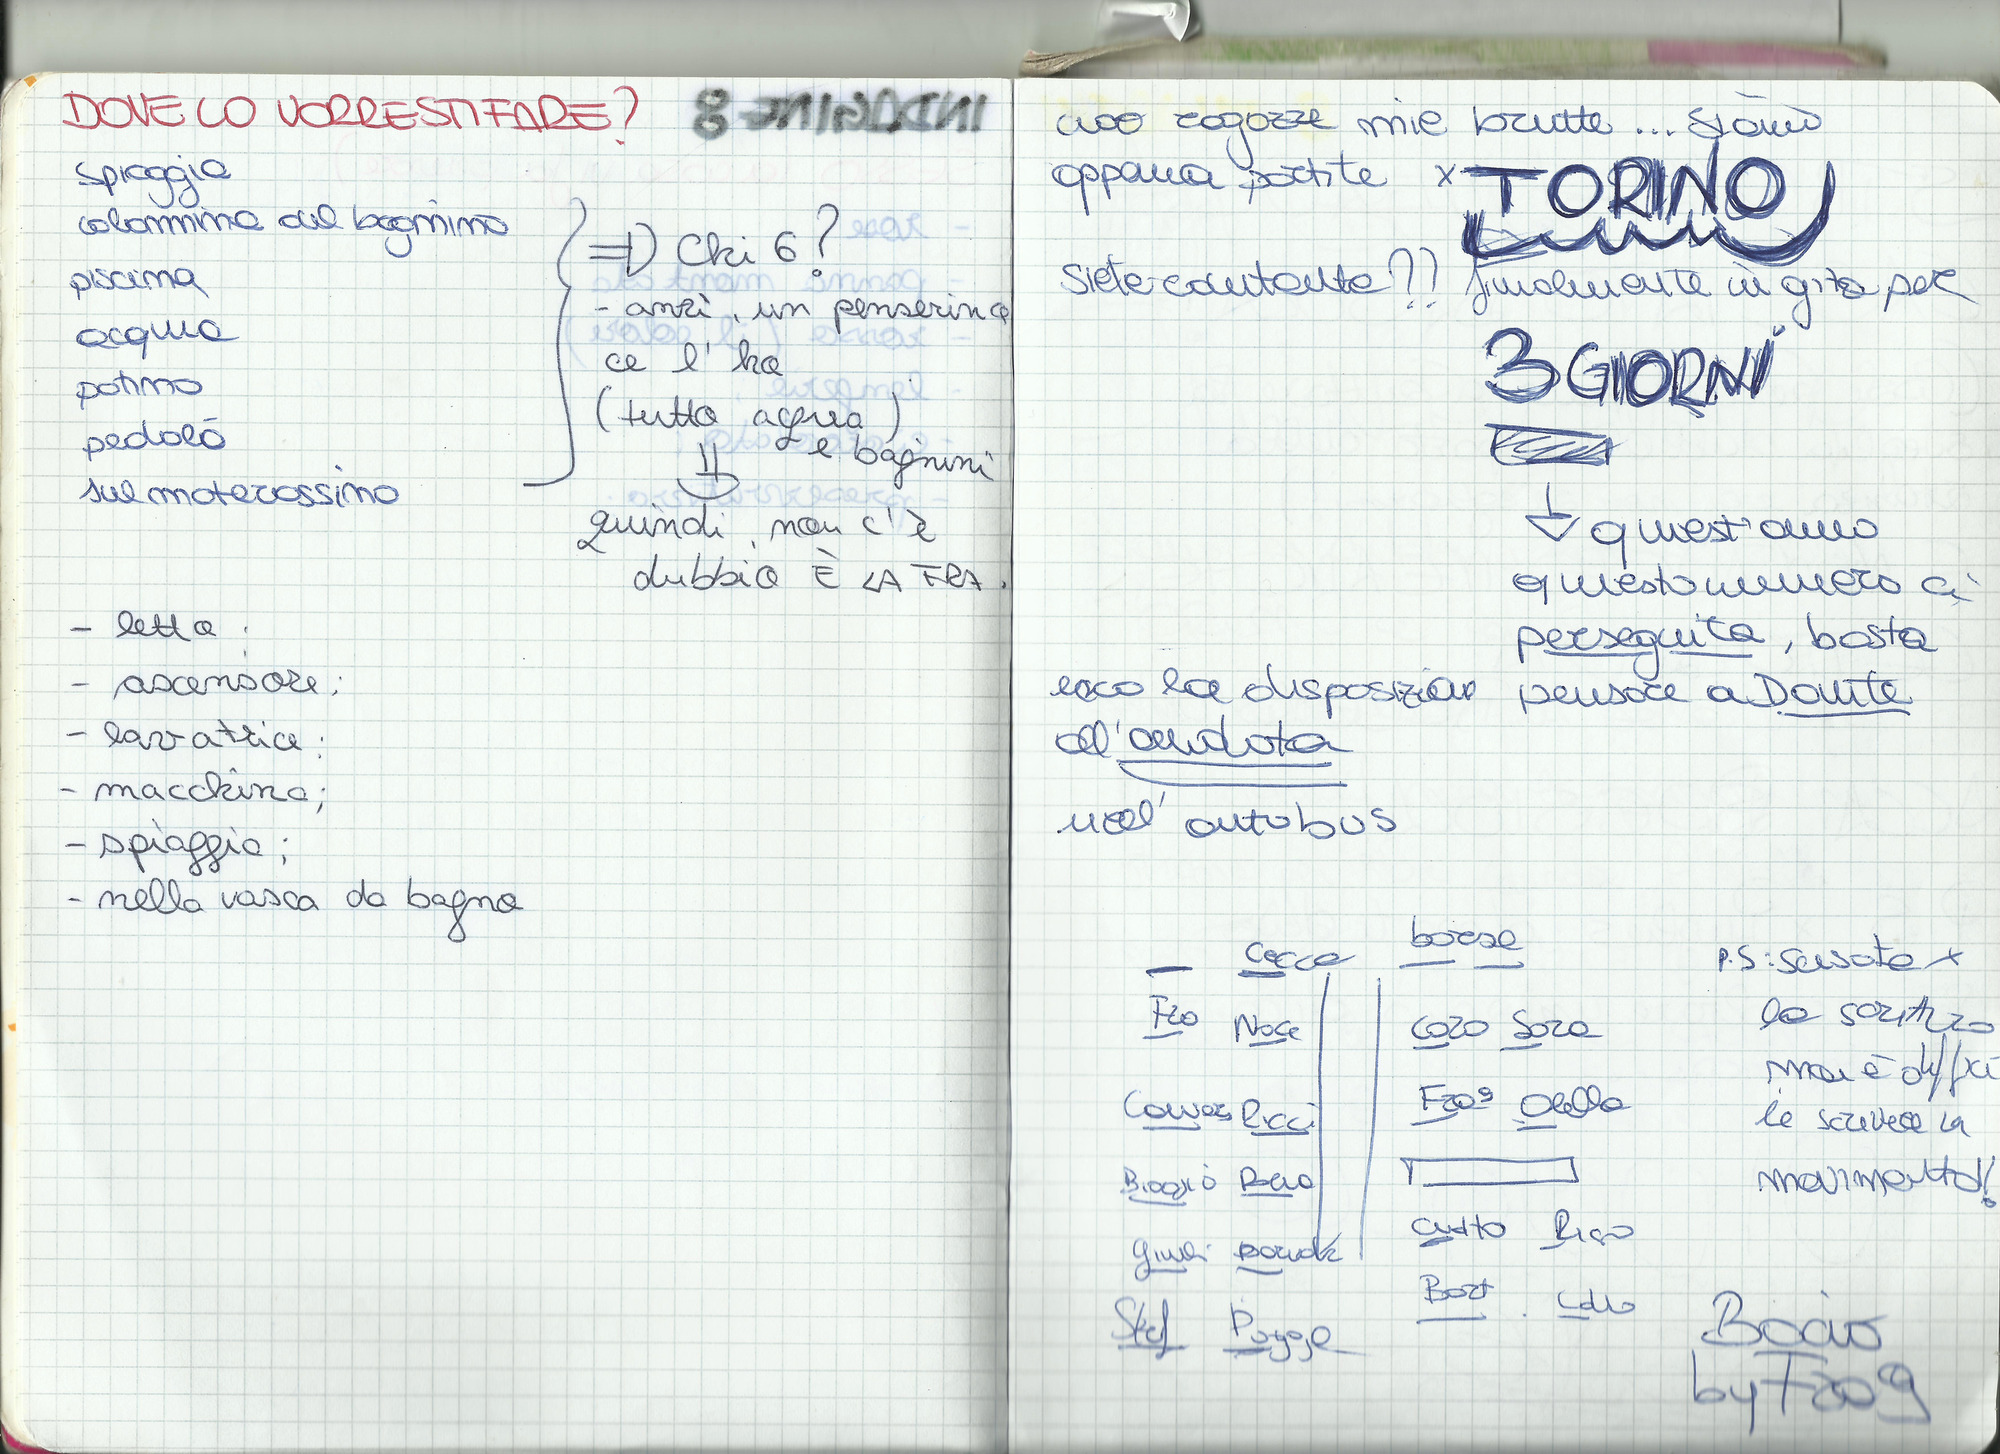 DOVE LO VORRESTI FARE?
INDAGINE 8
spiaggia
colonnina del bagnino
piscina
acqua
patino
pedalò
sul materassino
=D Chi 6?
- anzi, un pensierino
ce l'ha
(tutto acqua)
e bagnini
quindi, non c'è
dubbio È LA FRA.
- letto;
- ascensore;
- lavatrice;
- macchina;
- spiaggia;
- nella vasca da bagno
ciao ragazze mie brutte... siamo
appena partite x TORINO
siete contente?? finalmente in gita per
3 GIORNI
quest'anno
questo numero ci
perseguita, basta
pensare a Dante
ecco la disposizion
all'andata
nell'autobus
— Cecca borse
Fra Nace Caro Sara
Ricci Fra9
Biagio
Giuli
Stef Bart
P.S: scusate x
la scrittura
ma è diffici
le scrivere in
movimento!!
Bacio
by Fra9